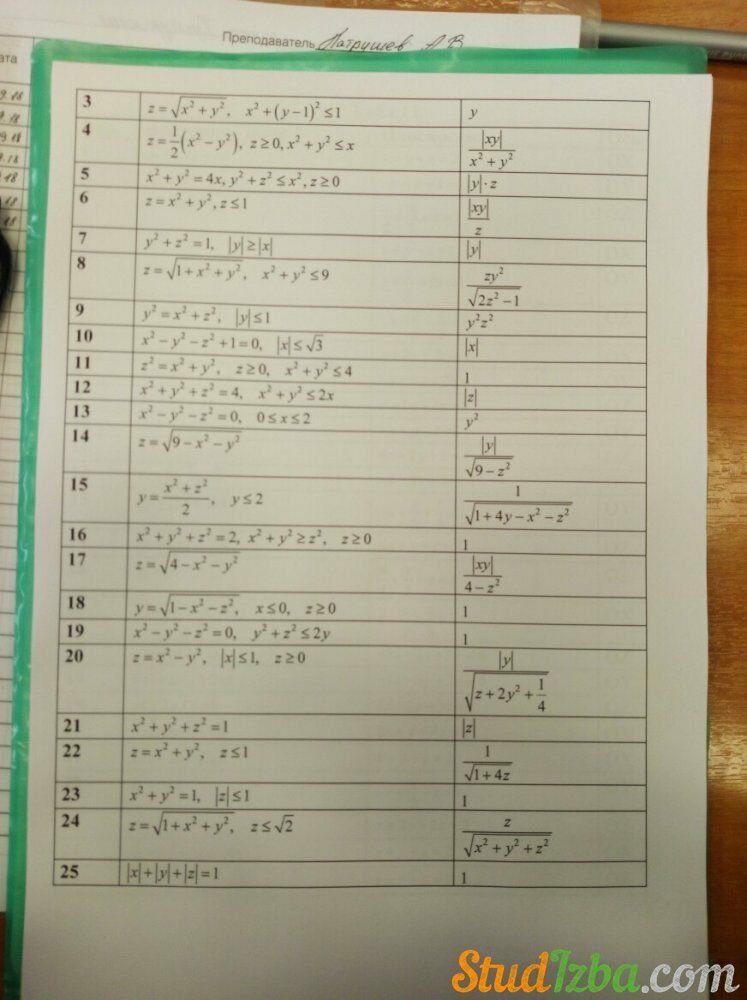 Преподаватель Патрушев А В
ата
9.18
9.18
9.18
9.18
18
18
18
3 z = √(x² + y²), x² + (y − 1)² ≤ 1 y
4 z = 1/2 (x² − y²), z ≥ 0, x² + y² ≤ x |xy| / (x² + y²)
5 x² + y² = 4x, y² + z² ≤ x², z ≥ 0 |y| · z
6 z = x² + y², z ≤ 1 |xy| / z
7 y² + z² = 1, |y| ≥ |x| |y|
8 z = √(1 + x² + y²), x² + y² ≤ 9 zy² / √(2z² − 1)
9 y² = x² + z², |y| ≤ 1 y²z²
10 x² − y² − z² + 1 = 0, |x| ≤ √3 |x|
11 z² = x² + y², z ≥ 0, x² + y² ≤ 4 1
12 x² + y² + z² = 4, x² + y² ≤ 2x |z|
13 x² − y² − z² = 0, 0 ≤ x ≤ 2 y²
14 z = √(9 − x² − y²) |y| / √(9 − z²)
15 y = (x² + z²) / 2, y ≤ 2 1 / √(1 + 4y − x² − z²)
16 x² + y² + z² = 2, x² + y² ≥ z², z ≥ 0 1
17 z = √(4 − x² − y²) |xy| / (4 − z²)
18 y = √(1 − x² − z²), x ≤ 0, z ≥ 0 1
19 x² − y² − z² = 0, y² + z² ≤ 2y 1
20 z = x² − y², |x| ≤ 1, z ≥ 0 |y| / √(z + 2y² + 1/4)
21 x² + y² + z² = 1 |z|
22 z = x² + y², z ≤ 1 1 / √(1 + 4z)
23 x² + y² = 1, |z| ≤ 1 1
24 z = √(1 + x² + y²), z ≤ √2 z / √(x² + y² + z²)
25 |x| + |y| + |z| = 1 1
StudIzba.com